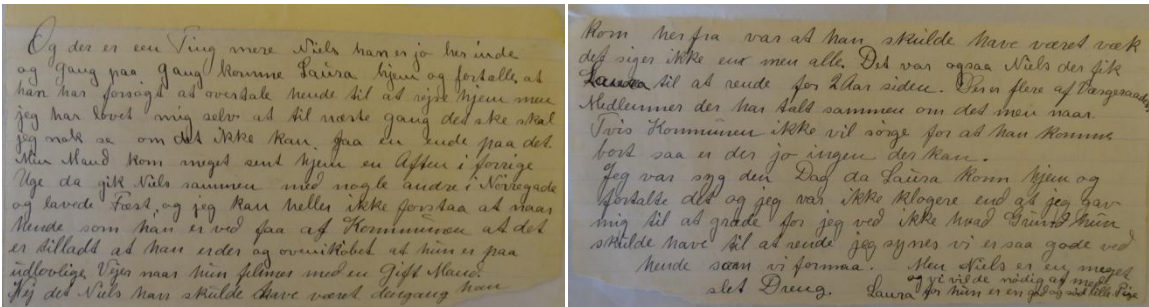 Og der er een Ting mere Niels han er jo her inde
og Gang paa Gang komme Laura hjem og fortalle, at
han har forsøgt at overtale hende til at rejse hjem men
jeg har lovet mig selv at til næste gang det ske skal
jeg nok se om det ikke kan faa en ende paa det.
Min Mand kom meget sent hjem en Aften i forrige
Uge da gik Niels sammen med nogle andre i Nørregade
og lavede Fæst, og jeg kan heller ikke forstaa at naar
hende som han er ved faa af Kommunen at det
er tilladt at han er der og at hun er paa
udlovlige Vejer naar hun med en Gift Mand
Nej det Niels han skulde have været dengang han
kom her fra var at han skulde have været væk
det siger ikke een men alle. Det var ogsaa Niels der fik
Laura til at rende for 2 Aar siden. Der er flere af Værgeraadets
Medlemmer der har talt sammen om det men naar
Tvis Kommunen ikke vil sørge for at han komme
bort saa er der jo ingen der kan.
Jeg var syg den Dag da Laura kom hjem og
fortalte det og jeg var ikke klogere end at jeg gav
mig til at græde for jeg ved ikke hvad Grund hun
skulde have til at rende jeg synes vi er saa gode ved
hende som vi formaa. Men Niels er en meget
slet Dreng. og vi vil de nødig af med
Laura for hun er en god og sød lille Pige